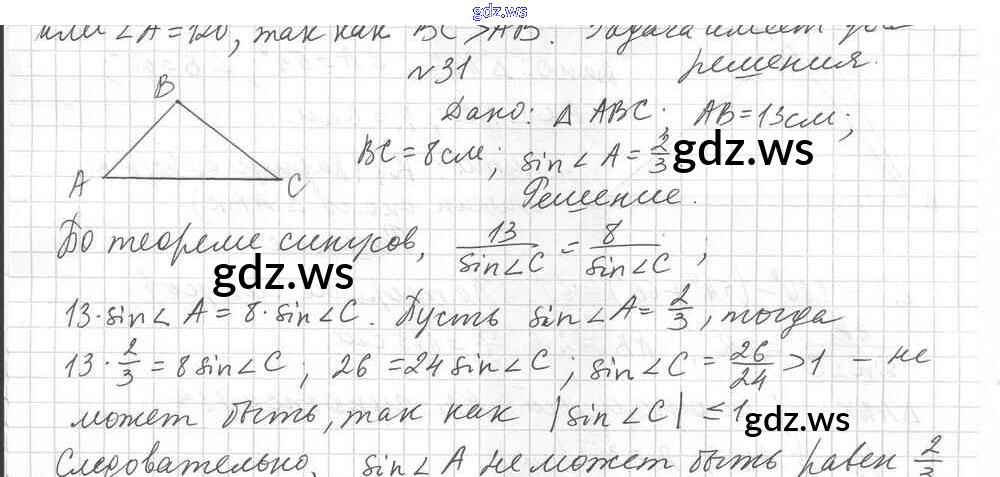 gdz.ws
или ∠A=120, так как BC>AB. Задача имеет два
решения.
№31
B
A
C
Дано: △ ABC; AB=13см;
BC=8см; sin∠A=2/3
gdz.ws
Решение.
По теореме синусов, 13/sin∠C = 8/sin∠C ;
gdz.ws
13·sin∠A=8·sin∠C. Пусть sin∠A=2/3, тогда
13·2/3=8sin∠C; 26=24sin∠C; sin∠C=26/24>1 – не
может быть, так как |sin∠C|≤1
gdz.ws
Следовательно, sin∠A не может быть равен 2/3